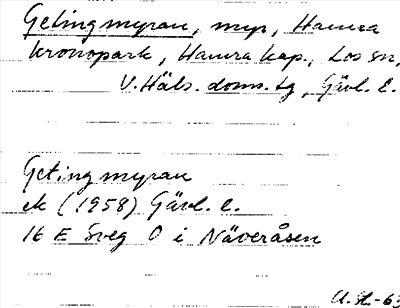 Getingmyran, myr, Hamra
kronopark, Hamra kap., Los sn,
V. Häls. doms. tg, Gävl. l.
Getingmyran
ek (1958) Gävl. l.
16 E Sveg O i Näveråsen
U. St. -63